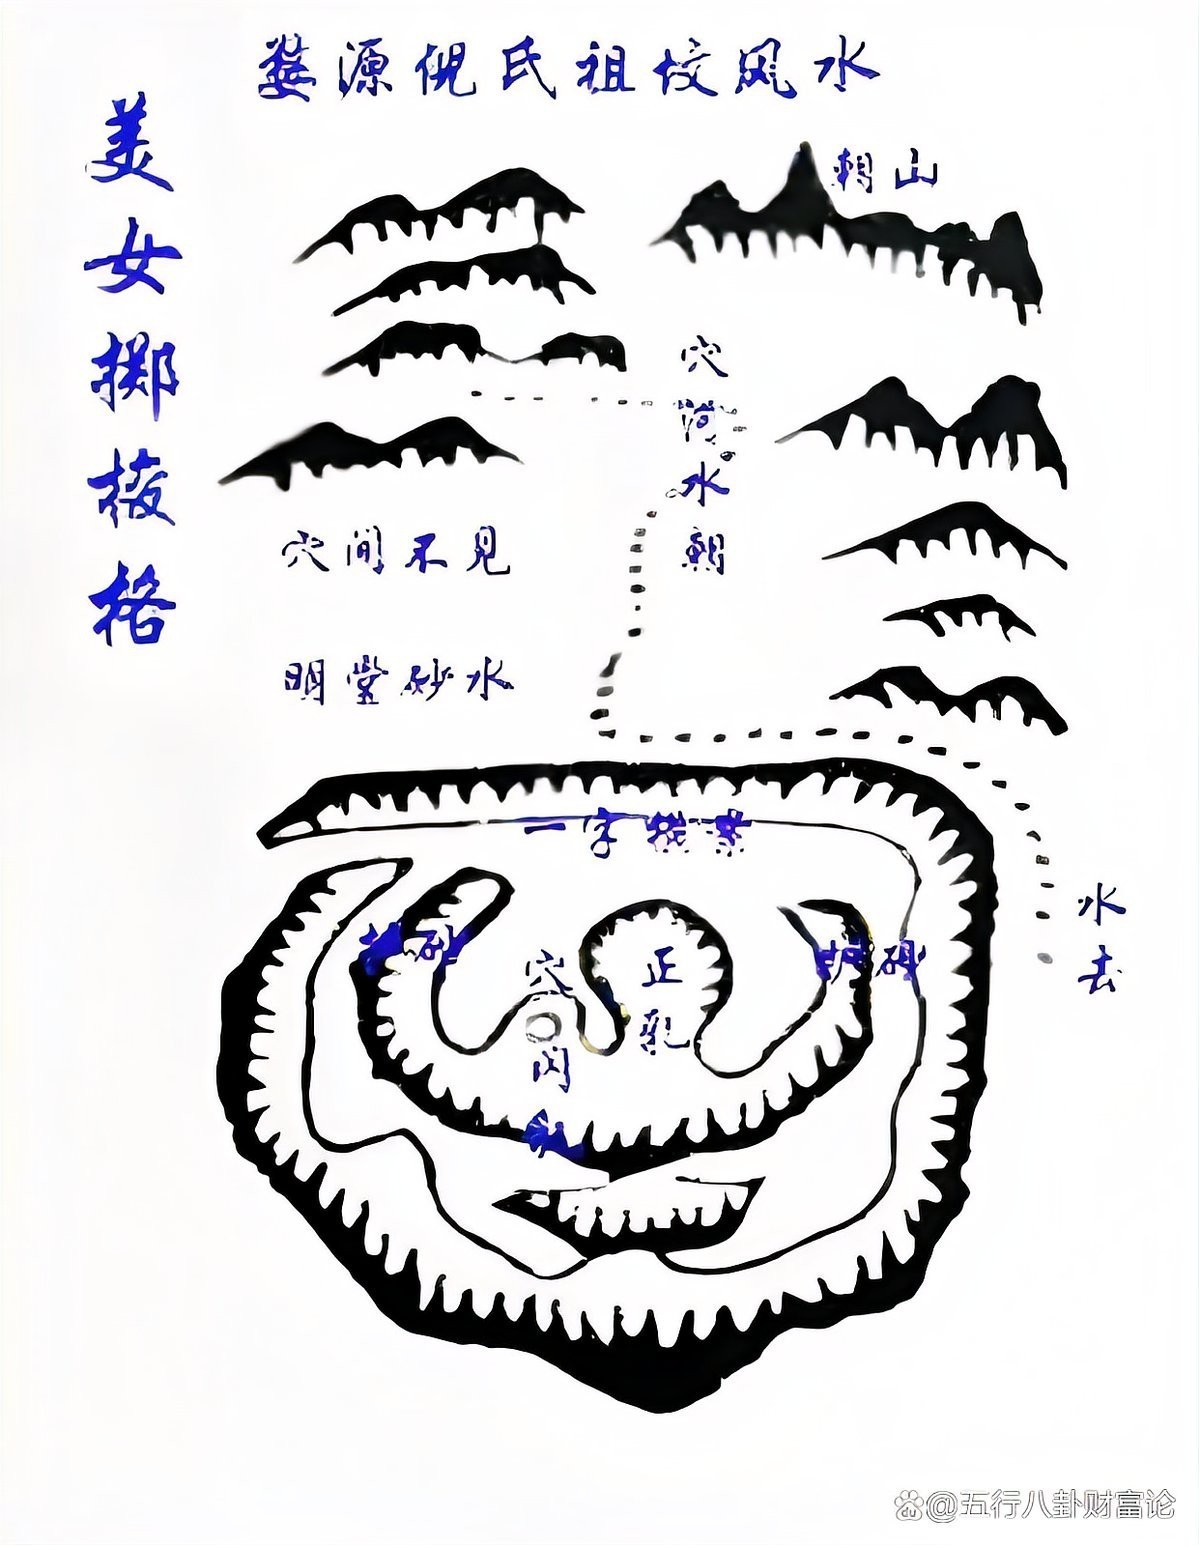 婺源倪氏祖坟风水
美女掷梭格
朝山
穴
水朝
穴间不见
明堂砂水
一字
砂
穴
正乳
护砂
水去
@五行八卦财富论